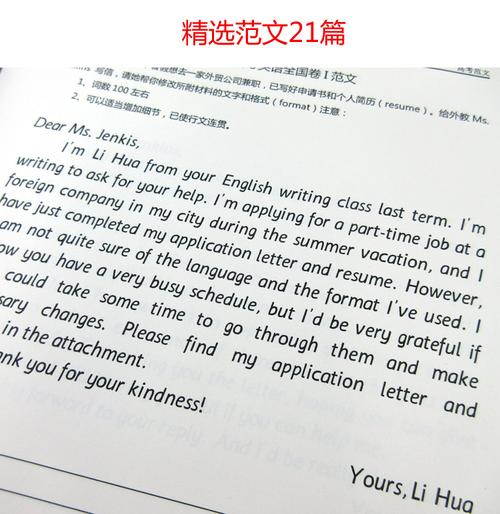 精选范文21篇
英语全国卷 I 范文
高考范文
想去一家外贸公司兼职，已写好申请书和个人简历（resume）。给外教 Ms.
写信，请她帮你修改所附材料的文字和格式（format）注意：
1、词数 100 左右
2、可以适当增加细节，已使行文连贯。
Dear Ms. Jenkis,
I'm Li Hua from your English writing class last term. I'm
writing to ask for your help. I'm applying for a part-time job at a
foreign company in my city during the summer vacation, and I
have just completed my application letter and resume. However,
am not quite sure of the language and the format I've used. I
ow you have a very busy schedule, but I'd be very grateful if
could take some time to go through them and make
sary changes. Please find my application letter and
in the attachment.
ank you for your kindness!
Yours, Li Hua